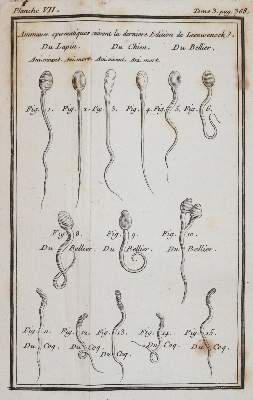 Planche VII. Tome 3. pag. 368.
Animaux spermatiques suivant la derniere Edition de Leeuwenoek.
Du Lapin. Du Chien. Du Belier.
An. vivant. An. mort. An. vivant. An. mort.
Fig. 1. Fig. 2. Fig. 3. Fig. 4. Fig. 5. Fig. 6.
Fig. 8. Fig. 9. Fig. 10.
Du Bellier. Du Bellier. Du Bellier.
Fig. 11. Fig. 12. Fig. 13. Fig. 14. Fig. 15.
Du Coq. Du Coq. Du Coq. Du Coq. Du Coq.